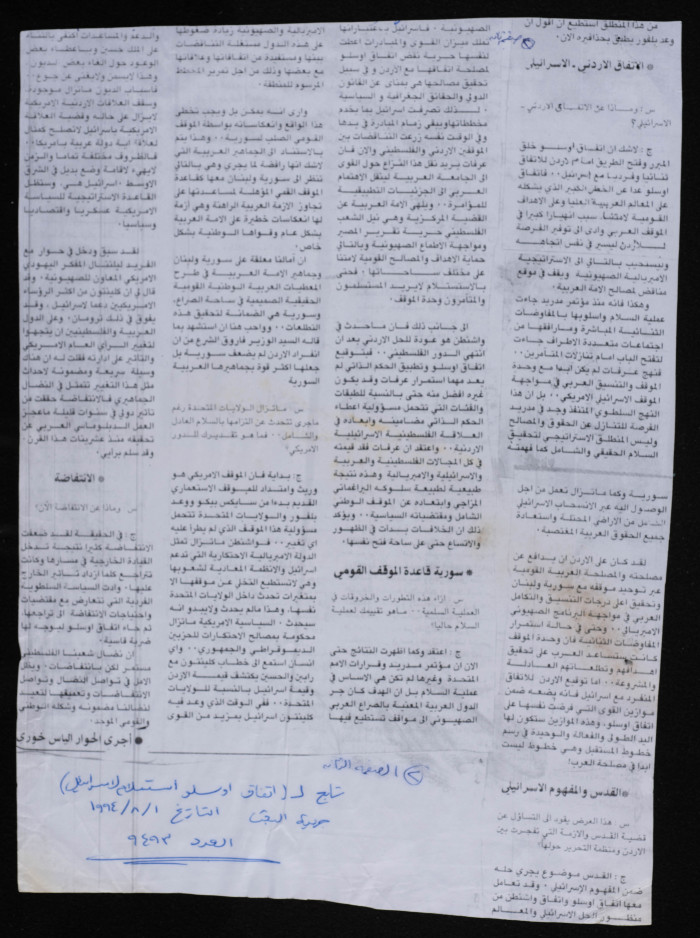 من هذا المنطلق استطيع ان اقول ان
وعد بلفور يطبق بحذافيره الآن.
* الاتفاق الاردني - الاسرائيلي
س : وماذا عن الاتفاق الاردني -
الاسرائيلي؟
ج : لاشك ان اتفاق اوسلو خلق
المبرر وفتح الطريق امام الاردن للاتفاق
ثنائيا وفرديا مع إسرائيل، فاتفاق
اوسلو عدا عن الخطر الكبير الذي يشكله
على المعالم العربية العليا وعلى الاهداف
القومية لامتنا، سبب انهيارا كبيرا في
الموقف العربي وادى الى توفير الفرصة
للأردن ليسير في نفس اتجاهه
وينسحب بالتالي الى الاستراتيجية
الامبريالية الصهيونية ويقف في موقع
مناقض لمصالح الامة العربية.
وهكذا فانه منذ مؤتمر مدريد جاءت
عملية السلام واسلوبها بالمفاوضات
الثنائية المباشرة ومارافقها من
اجتماعات متعددة الاطراف جاءت
لتفتح الباب امام تنازلات المتآمرين..
فنهج عرفات لم يكن ابدا مع وحدة
الموقف والتنسيق العربي في مواجهة
الموقف الاسرائيلي الامريكي.. بل ان هذا
النهج السلطوي المتنفذ وجد في مدريد
الفرصة للتنازل عن الحقوق والمصالح
وليس المنطلق الاستراتيجي لتحقيق
السلام الحقيقي والشامل كما فهمته
سورية وكما ماتزال تعمل من اجل
الوصول اليه عبر الانسحاب الاسرائيلي
الشامل من الاراضي المحتلة واستعادة
جميع الحقوق العربية المغتصبة.
لقد كان على الاردن ان يدافع عن
مصلحته والمصلحة العربية القومية
عبر توحيد موقفه مع سورية ولبنان
وتحقيق اعلى درجات التنسيق والتكامل
العربي في مواجهة البرنامج الصهيوني
الامبريالي.. وحتى في حالة استمرار
المفاوضات الثنائية فان وحدة الموقف
كانت ستساعد العرب على تحقيق
اهدافهم وتطلعاتهم العادلة
والمشروعة.. اما توقيع الاردن للاتفاق
المنفرد مع اسرائيل فانه يضعه ضمن
موازين القوى التي فرضت نفسها على
اتفاق اوسلو، وهذه الموازين ستكون لها
اليد الطولى والفعالة والوحيدة في رسم
خطوط المستقبل وهي خطوط ليست
ابدا في مصلحة العرب!
* القدس والمفهوم الاسرائيلي
س : هذا العرض يقود الى التساؤل عن
قضية القدس والازمة التي تفجرت بين
الاردن ومنظمة التحرير حولها؟
ج : القدس موضوع يجري حله
ضمن المفهوم الإسرائيلي. وقد تعامل
معها اتفاق اوسلو واتفاق واشنطن من
منظور الحل الاسرائيلي والمعالم
الصهيونية. فاسرائيل باعتباراتها
تملك ميزان القوى والمبادرات اعطت
لنفسها حرية نقض اتفاق اوسلو
لمصلحة اتفاقها مع الاردن و في سبيل
تحقيق مصالحها هي بمنأى عن القانون
الدولي والحقائق الجغرافية و السياسية
. لـــذلك تصرفت اسرائيل بما يخدم
مخططاتها ويبقي زمام المبادرة في يدها
وفي الوقت نفسه زرعت التناقضات بين
الموقفين الاردني والفلسطيني والآن فان
عرفات يريد نقل هذا النزاع حول القوى
الى الجامعة العربية لينقل الاهتمام
العربي الى الجزئيات التطبيقية
للمؤامرة.. ويلهي الامة العربية عن
القضية المركزية وهي نيل الشعب
الفلسطيني حرية تقرير المصير
ومواجهة الاطماع الصهيونية وبالتالي
حماية الاهداف والمصالح القومية لامتنا
على مختلف ســاحاتهــا. فحتى
بالاستسلام لايريد المستسلمون
والمتآمرون وحدة الموقف.
الى جانب ذلك فان ماحدث في
واشنطن هو عودة للحل الاردني بعد ان
انتهى الدور الفلسطيني.. فبتوقيع
اتفاق اوسلو وتطبيق الحكم الذاتي لم
يعد مهما استمرار عرفات وقد يكون
غيره افضل منه حتى بالنسبة للطبقات
والفئات التي تتحمل مسؤولية اعطاء
الحكم الذاتي مضامينه وابعاده في
العلاقة الفلسطينية الاسرائيلية
الاردنية.. واعتقد ان عرفات فقد قيمته
في كل المجالات الفلسطينية والعربية
والاسرائيلية والامبريالية وهذه نتيجة
طبيعية لطبيعة سلوكه البراغماتي
المزاجي وابتعاده عن الموقف الوطني
الشامل ومقتضياته السياسية.. ويؤكد
ذلك ان الخلافات بدأت في الظهور
والاتساع حتى على ساحة فتح نفسها.
* سورية قاعدة الموقف القومي
س : ازاء هذه التطورات والخروقات في
العملية السلمية.. ماهو تقييمك لعملية
السلام حاليا؟
ج : اعتقد وكما اظهرت النتائج حتى
الآن ان مؤتمر مدريد وقرارات الامم
المتحدة وغيرها لم تكن هي الاساس في
عملية السلام بل ان الهدف كان جر
الدول العربية المعنية بالصراع العربي
الصهيوني الى مواقف تستطيع فيها
الامبريالية والصهيونية زيادة ضغوطها
على هذه الدول مستغلة التناقضات
بينها ومستفيدة من اتفاقاتها وعلاقاتها
مع بعضها وذلك من اجل تمرير المخطط
المرسوم للمنطقة.
وارى انه يمكن بل ويجب تخطي
هذا الواقع وانعكاساته بواسطة الموقف
القومي الصلب لسورية.. وهذا يتم
بالاستناد الى الجماهير العربية التي
لاشك انها رافضة لما يجري وهي بالتالي
تنظر الى سورية ولبنان معها كقاعدة
الموقف القمي المؤهلة لمساعدتها على
تجاوز الازمة العربية الراهنة وهي ازمة
لها انعكاسات خطيرة على الامة العربية
بشكل عام وقواها الوطنية بشكل
خاص.
ان آمالنا معلقة على سورية ولبنان
وجماهير الامة العربية في طرح
المعطيات العربية الوطنية القومية
الحقيقية الصميمية في ساحة الصراع.
وسورية هي الضمانة لتحقيق هذه
التطلعات.. وواجب هنا ان استشهد بما
قاله السيد الوزير فاروق الشرع من ان
انفراد الاردن لم يضعف سورية بل
جعلها اكثر قوة بجماهيرها العربية
السورية
س : ماتزال الولايات المتحدة رغم
ماجرى تتحدث عن التزامها بالسلام العادل
والشامل.. فما هو تقديرك للدور
الامريكي؟
ج: بداية فان الموقف الامريكي هو
وريث وامتداد للموقف الاستعماري
القديم بدءا من سايكس بيكو ووعد
بلفور والولايات المتحدة تتحمل
مسؤولية هذا الموقف الذي لم يطرأ عليه
اي تغيير.. فواشنطن ماتزال تمثل
الدولة الامبريالية الاحتكارية التي تدعم
اسرائيل والانظمة المعادية لشعوبها
وهي لاتستطيع التخلي عن موقفها الا
بمتغيرات تحدث داخل الولايات المتحدة
نفسها، وهذا مالم يحدث ولايبدو انه
سيحدث. السياسية الامريكية ماتزال
محكومة بمصالح الاحتكارات للحزبين
الديموقراطي والجمهوري.. واي
انسان استمع الى خطاب كلينتون مع
رابين والحسين يكتشف قيمة الاردن
وقيمة اسرائيل بالنسبة للولايات
المتحدة.. ففي الوقت الذي وعد فيه
كلينتون اسرائيل بمزيد من القوى
والدعم والمساعدات اكتفى بالثناء
على الملك حسين وباعطاء بعض
الوعود حول الغاء بعض الديون.
وهذا لايسمن ولايغني عن جوع.
فاسباب الديون ماتزال موجودة
وسقف العلاقات الاردنية الامريكية
لايزال على حاله وقضية العلاقة
الامريكية باسرائيل لاتصلح كمثال
لعلاقة اية دولة عربية بأمريكا..
فالظروف مختلفة تماما والزمن
لايفي لاقامة وضع بديل في الشرق
الاوسط. اسرائيل هي. وستظل
القاعدة الاستراتيجية للسياسة
الامريكية عسكريا واقتصاديا
وسياسيا.
لقد سبق ودخل في حوار مع
الفريد ليلنتال المفكر اليهودي
الامريكي المعاون للصهيونية. وقد
قال لي ان كلينتون من اكثر الرؤساء
الامريكيين دعما لاسرائيل. وقد
يفوق في ذلك ترومان. وعلى الدول
العربية والفلسطينيين ان يتجهوا
لتغيير الرأي العام الامريكي
والتأثير على ادارته فقلت له ان هناك
وسيلة سريعة ومضمونة لاحداث
مثل هذا التغيير تتمثل في النضال
الجماهيري فالانتفاضة حققت من
تأثير دولي في سنوات قليلة ماعجز
العمل الدبلوماسي العربي عن
تحقيقه منذ عشرينات هذا القرن
وقد سلم برأيي.
* الانتفاضة
س : وماذا عن الانتفاضة الآن؟
ج: في الحقيقة لقد ضعفت
الانتفاضة كثيرا نتيجة تدخل
القيادة الخارجية في مسارها وكانت
تتراجع كلما ازداد تأثير الخارج
عليها. وادت السياسة السلطوية
الفردية التي تتعارض مع مقتضيات
واحتياجات الانتفاضة الى تراجعها.
ثم جاء اتفاق اوسلو ليوجه لها
ضربة قاسية.
ان نضال شعبنا الفلسطيني
مستمر لكن بانتفاضات. ويظل
الامل في تواصل النضال وتواصل
الانتفاضات وتعميقها لتعيد
لنضالنا مضمونه وشكله الوطني
والقومي الموحد.
* اجرى الحوار الياس خوري
② الصفحة الثانية
تابع لـ (اتفاق اوسلو استسلام لاسرائيل)
جريدة البعث التاريخ ١٩٩٤/٨/١
العدد ٩٤٩٣